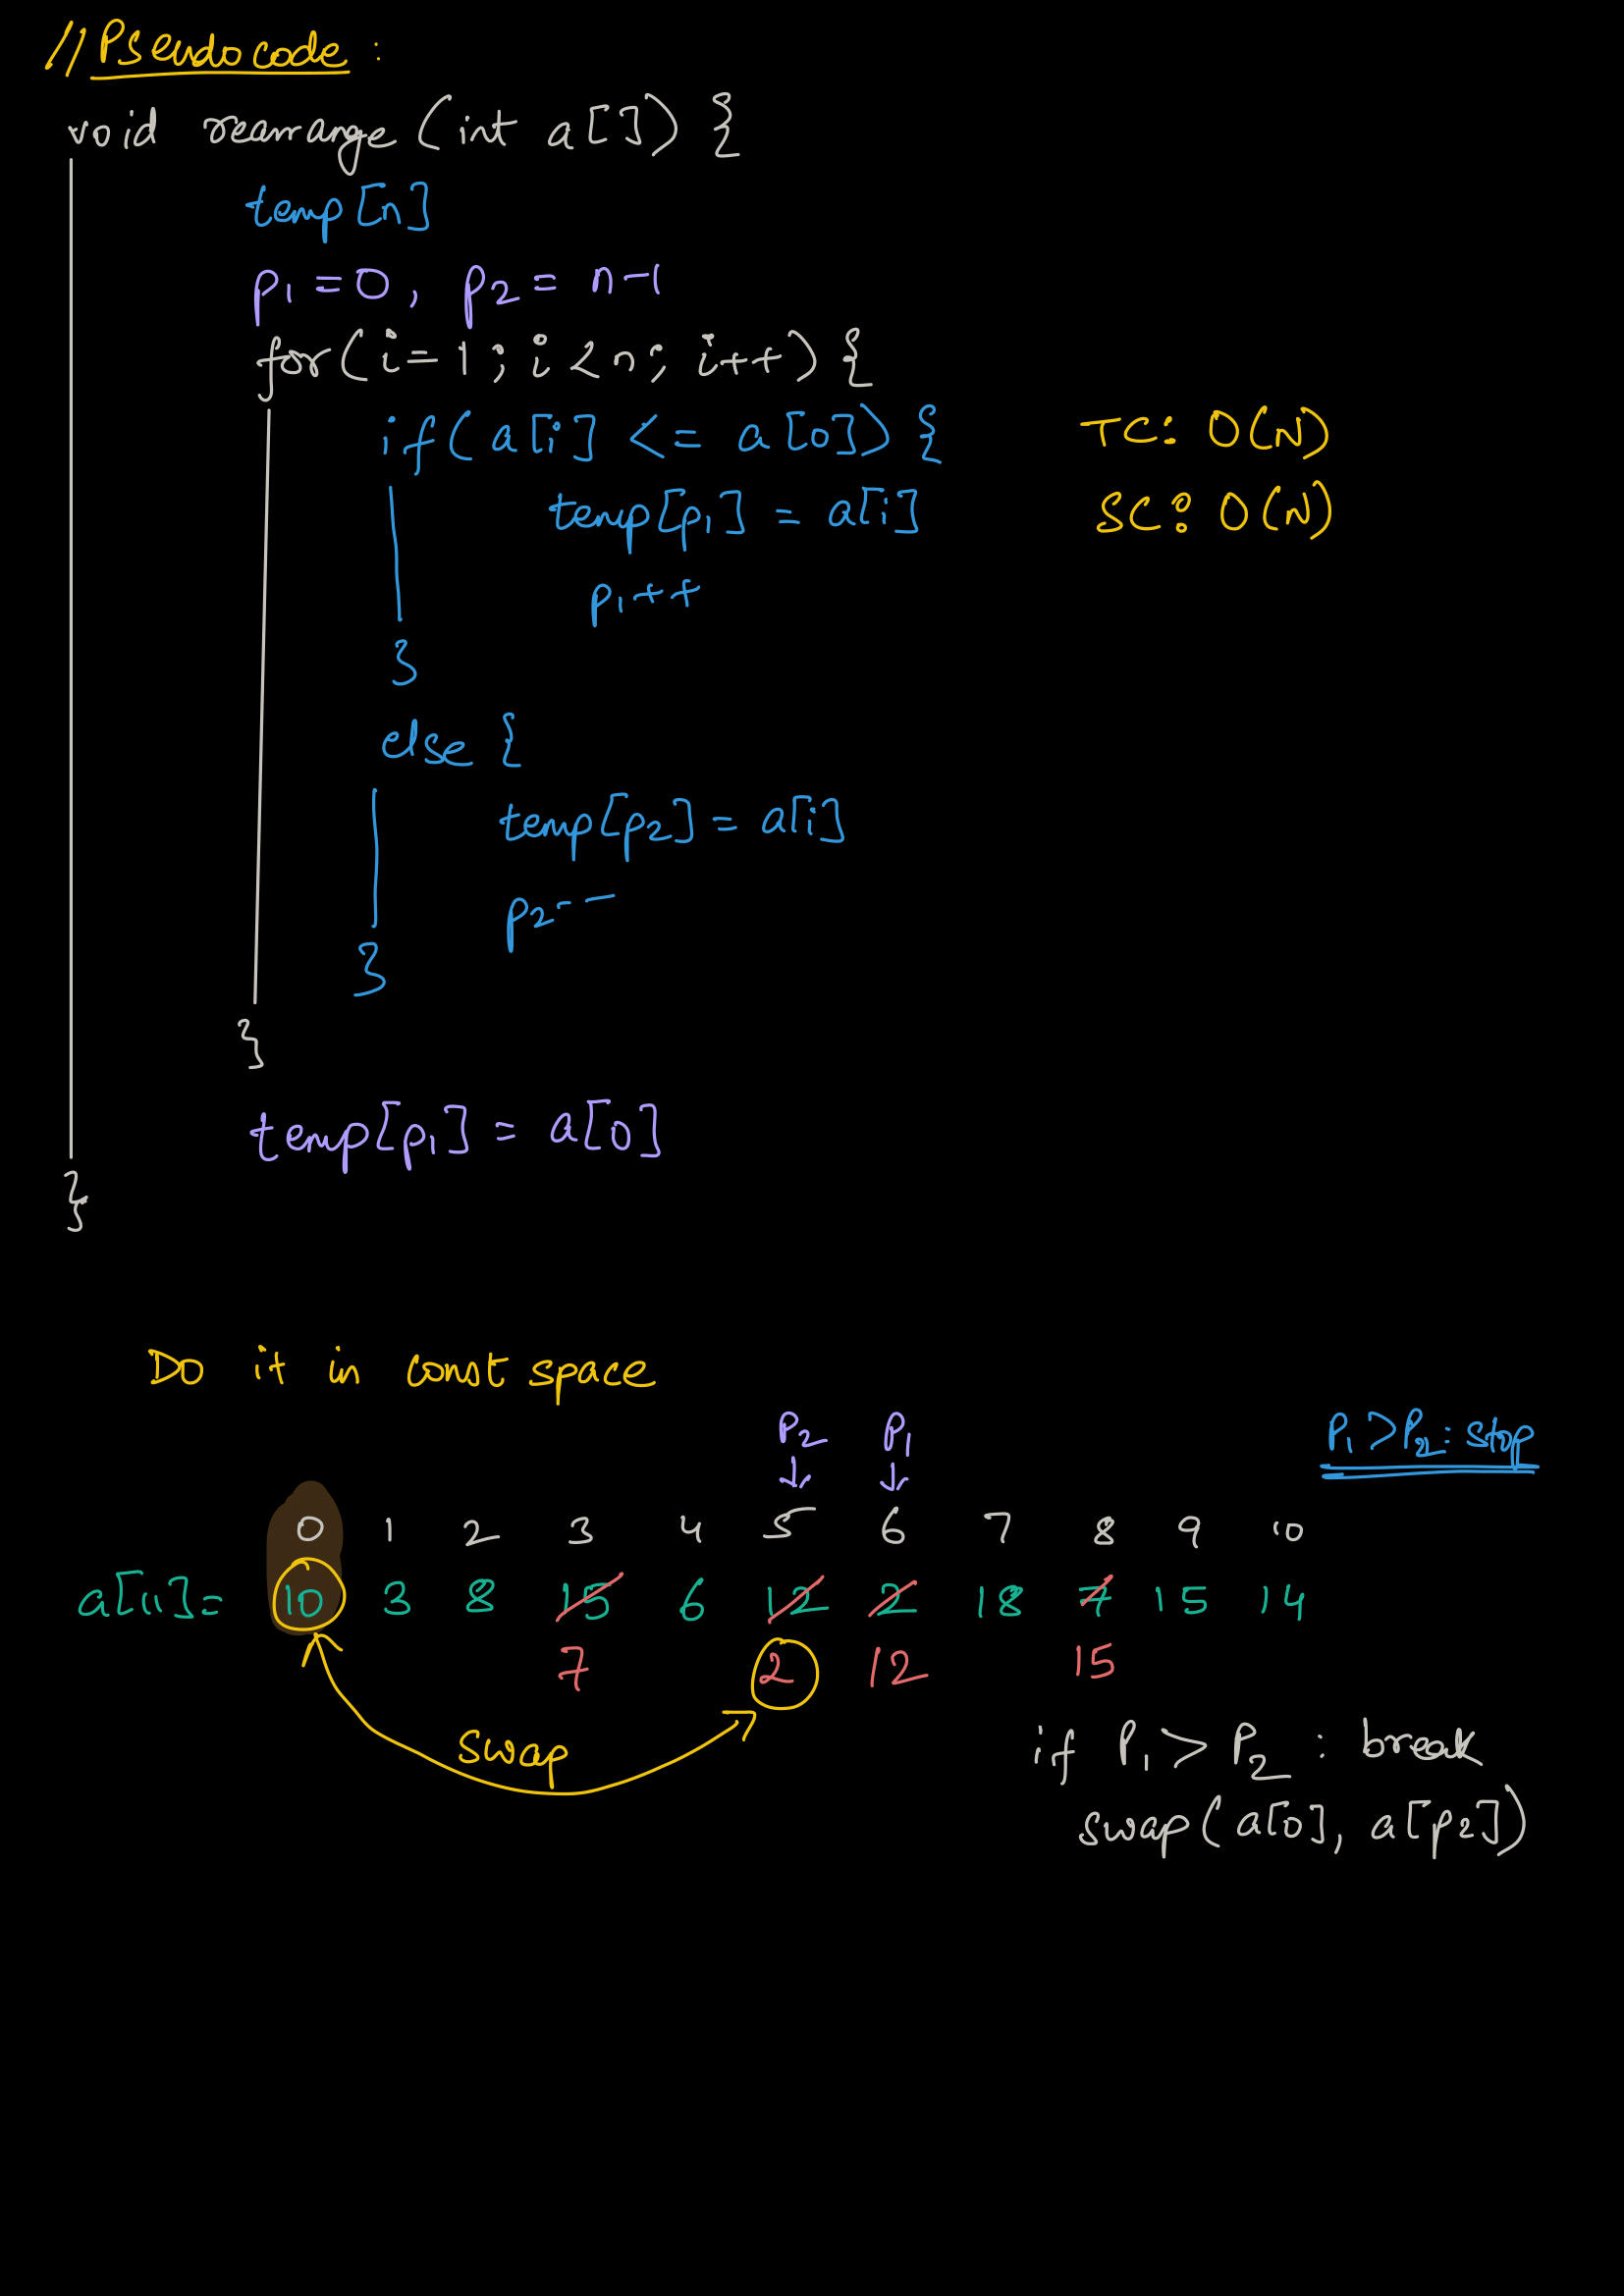 //Pseudocode :
void rearrange (int a[]) {
temp[n]
p1 = 0, p2 = n-1
for(i=1; i<n; i++) {
if( a[i] <= a[0]) { TC: O(N)
temp[p1] = a[i] SC: O(N)
p1++
}
else {
temp[p2] = a[i]
p2--
}
}
temp[p1] = a[0]
}
Do it in const space
P2 P1 P1 > P2 : stop
0 1 2 3 4 5 6 7 8 9 10
a[11]= 10 3 8 15 6 12 2 18 7 15 14
7 2 12 15
swap if P1 > P2 : break
swap(a[0], a[p2])